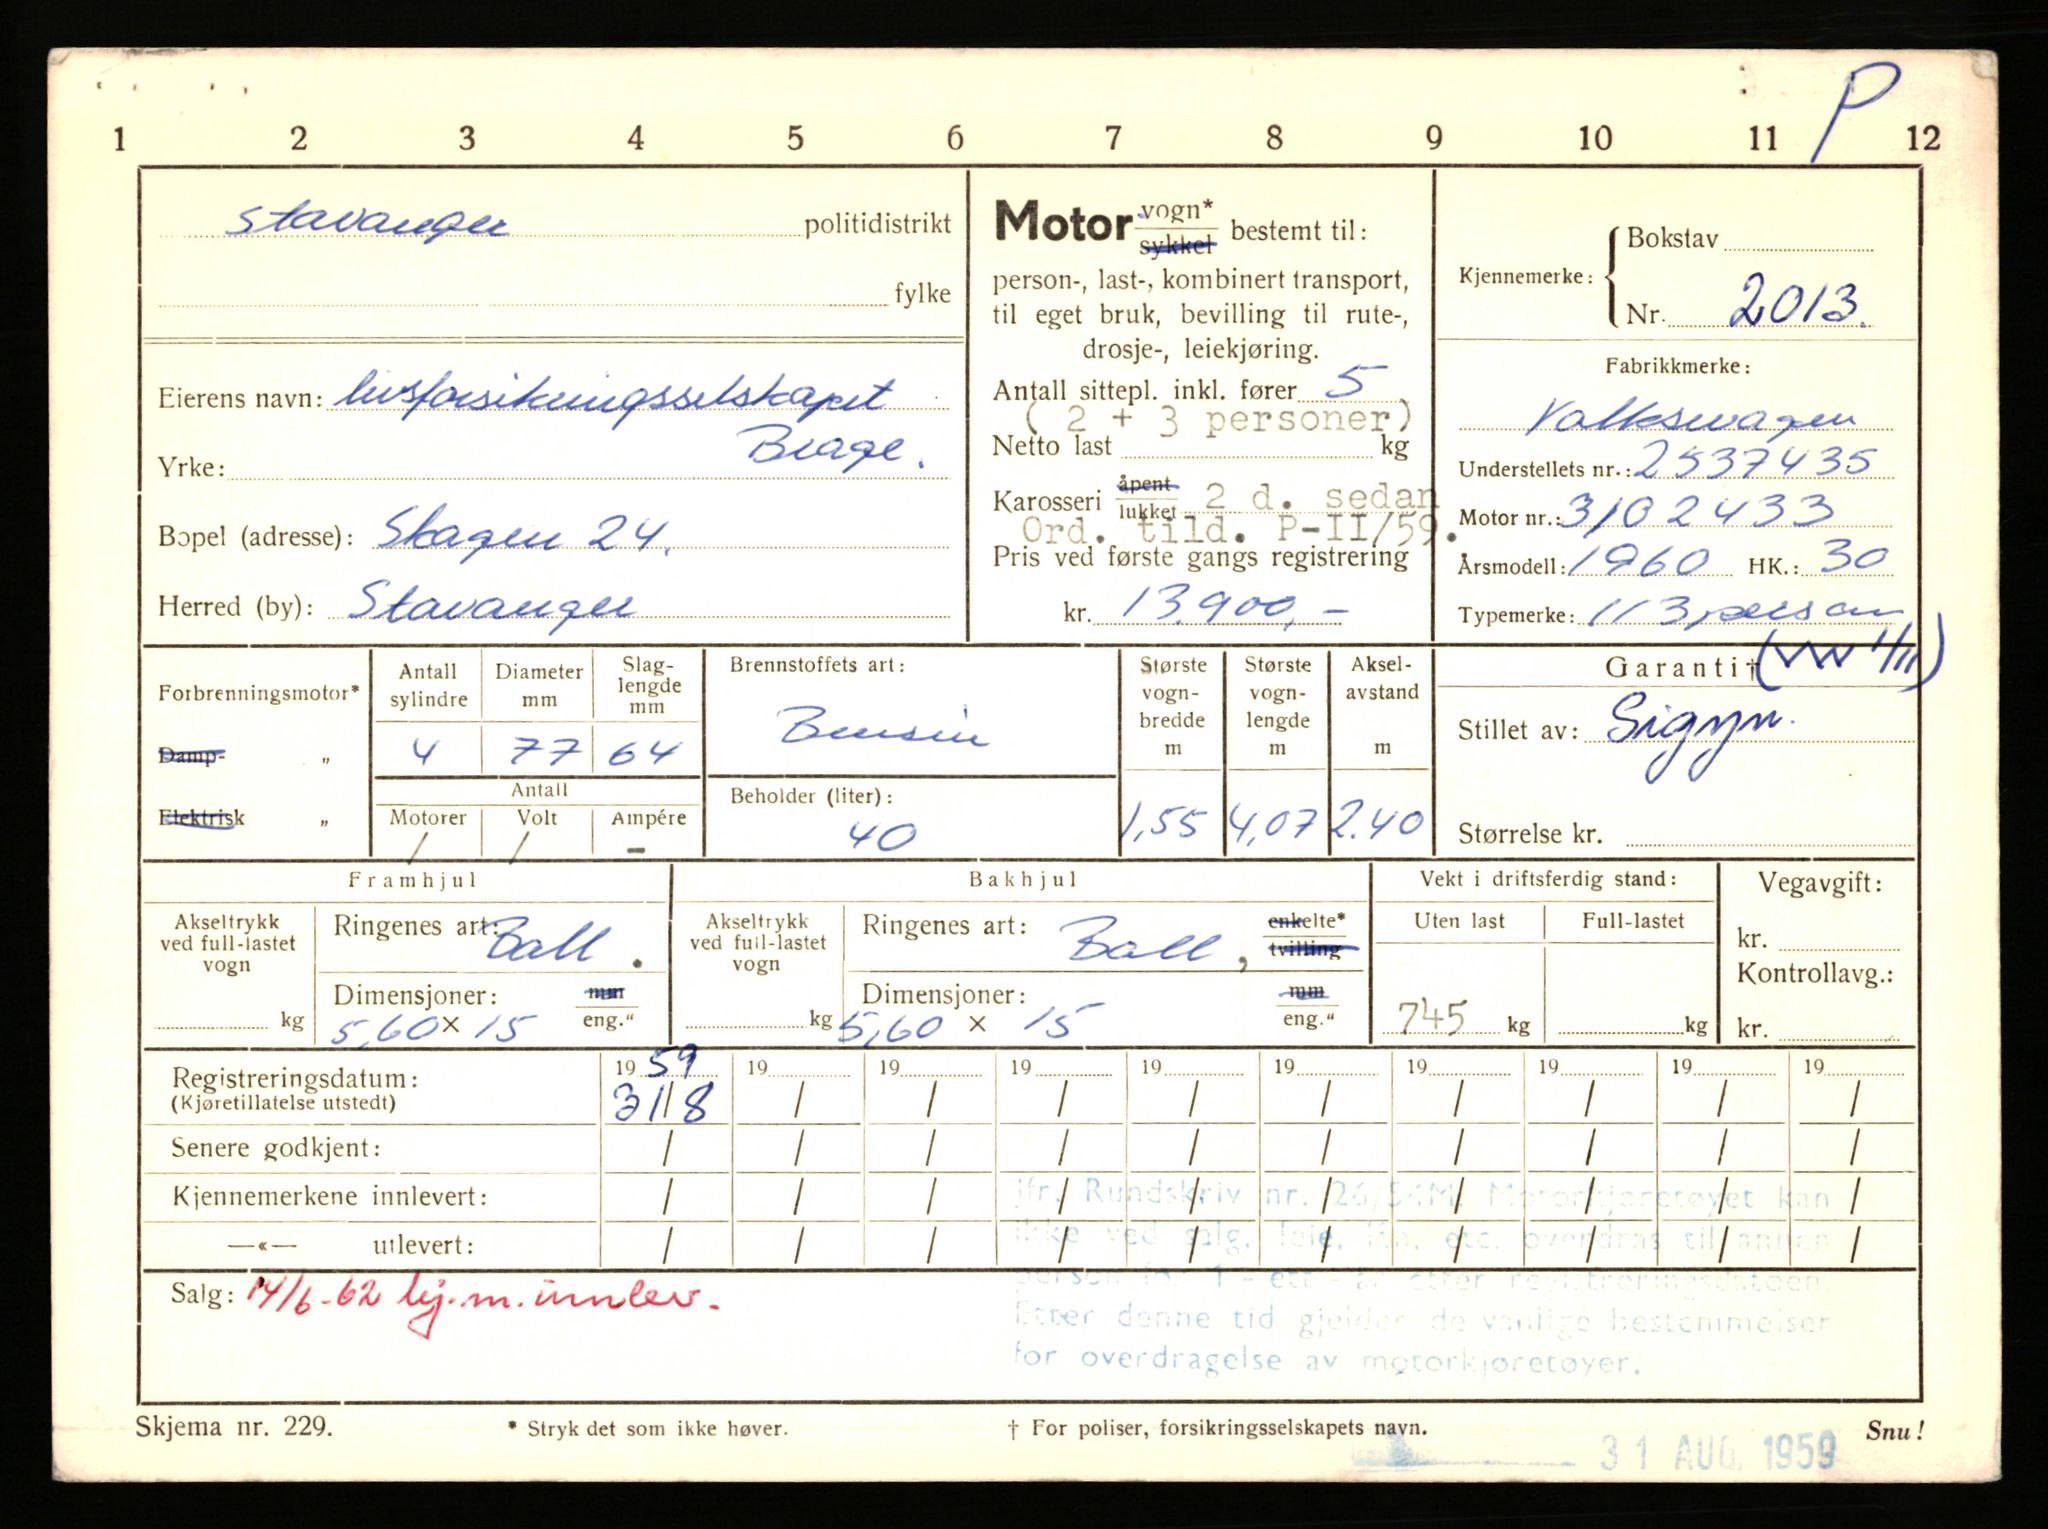 P
1 2 3 4 5 6 7 8 9 10 11 12
Stavanger politidistrikt
fylke
Eierens navn: livsforsikringsselskapet
Brage.
Yrke:
Bopel (adresse): Skagen 24.
Herred (by): Stavanger
Motor vogn*
sykkel bestemt til:
person-, last-, kombinert transport,
til eget bruk, bevilling til rute-,
drosje-, leiekjøring.
Antall sittepl. inkl. fører 5
( 2 + 3 personer)
Netto last kg
Karosseri åpent
lukket 2 d. sedan
Ord. tild. P-II/59.
Pris ved første gangs registrering
kr. 13.900,-
Kjennemerke: Bokstav
Nr. 2013.
Fabrikkmerke:
Volkswagen
Understellets nr.: 2537435
Motor nr.: 3102433
Årsmodell: 1960 HK.: 30
Typemerke: 113, person
(VW 1/11)
Forbrenningsmotor*
Damp- „
Elektrisk „
Antall sylindre
4
Diameter mm
77
Slag-
lengde
mm
64
Antall
Motorer Volt Ampére
/ / –
Brennstoffets art:
Bensin
Beholder (liter):
40
Største
vogn-
bredde
m
1,55
Største
vogn-
lengde
m
4,07
Aksel-
avstand
m
2.40
Garanti†
Stillet av: Sigyn.
Størrelse kr.
Framhjul
Akseltrykk
ved full-lastet
vogn
kg
Ringenes art: Ball.
Dimensjoner: mm
5,60 x 15 eng.“
Bakhjul
Akseltrykk
ved full-lastet
vogn
kg
Ringenes art: Ball, enkelte*
tvilling
Dimensjoner: mm
5,60 x 15 eng.“
Vekt i driftsferdig stand:
Uten last Full-lastet
745 kg kg
Vegavgift:
kr.
Kontrollavg.:
kr.
Registreringsdatum: 19 59 19 19 19 19 19 19 19 19 19
(Kjøretillatelse utstedt) 31/8 / / / / / / / / /
Senere godkjent: / / / / / / / / / /
Kjennemerkene innlevert: / / / / / / / / / /
—«— utlevert: / / / / / / / / / /
jfr. Rundskriv nr. 26/54M. Motorkjøretøyet kan
ikke ved salg, leie, lån, etc. overdras til annen
person før 1 - ett - år etter registreringsdatoen.
Etter denne tid gjelder de vanlige bestemmelser
for overdragelse av motorkjøretøyer.
Salg: 14/6-62 kj.m. innlev.
Skjema nr. 229.
* Stryk det som ikke høver.
† For poliser, forsikringsselskapets navn.
Snu!
31 AUG. 1959